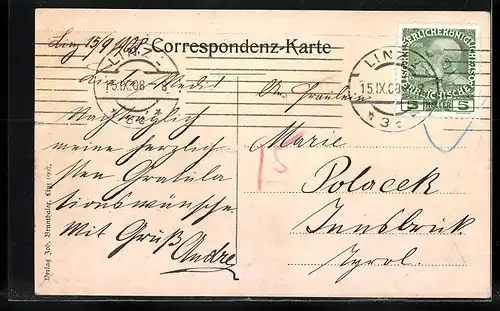 Linz 15/9 1908
Correspondenz-Karte
LINZ
15.IX.08
* 3a *
LINZ
15.IX.08
* 3
KAISERLICHE KÖNIGLICHE
ÖSTERREICHISCHE POST
5 HELLER 5
Liebe Medi!
Nachträglich
meine herzlich
sten Gratula
tionswünsche.
Mit Gruß
Andre
An Fräulein
Marie
Polacek
Innsbruck
Tyrol.
15
Verlag Joh. Brunthaler, Linz 1907.